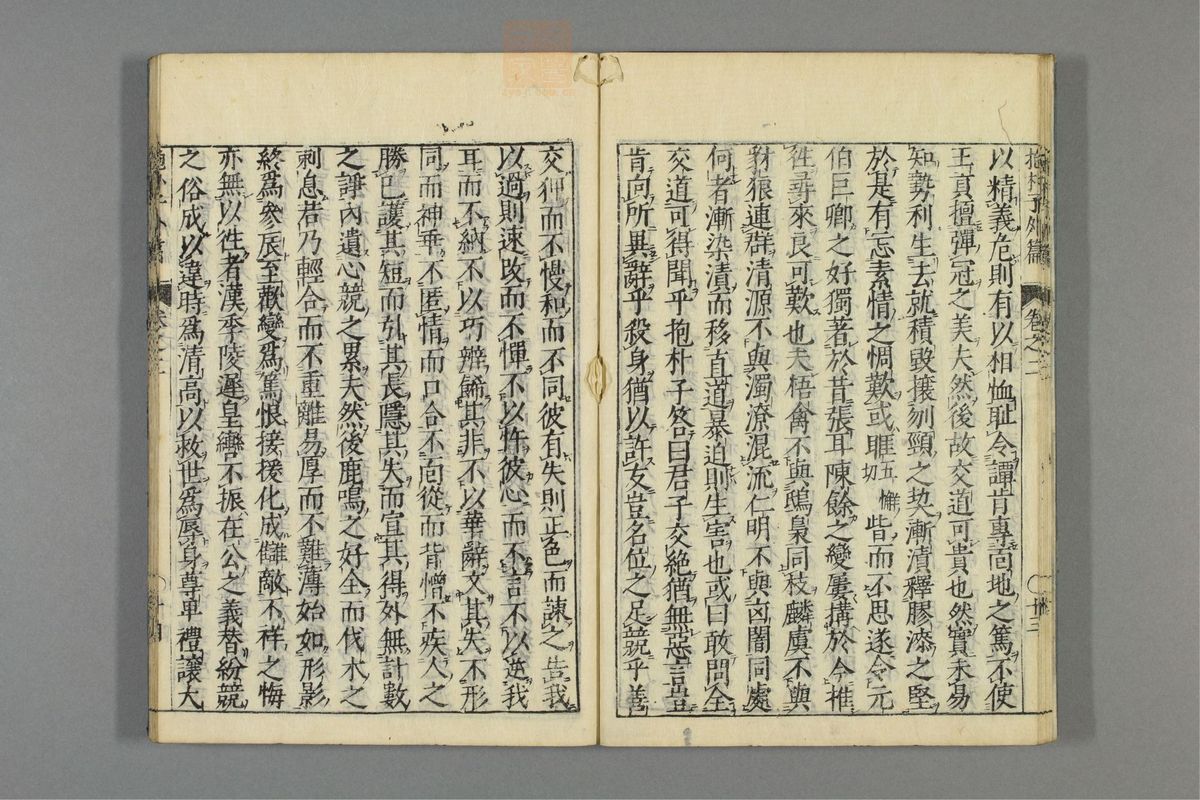 抱朴子外篇 卷之二 〇廿三
以精義危則有以相恤耻令譚肯專面地之篤不使
王貢擅彈冠之美夫然後故交道可貴也然實未易
知勢利生去就積毀攘刎頸之契漸漬釋膠漆之堅
於是有忘素情之惆歎或睚五懈切眥而不思遂令元
伯巨卿之好獨著於昔張耳陳餘之變屢搆於今推
往尋來良可歎也夫梧禽不與鴟梟同枝麟虞不與
豺狼連群清源不與濁潦混流仁明不與凶闇同處
何者漸染漬而移直道暴迫則生害也或曰敢問全
交道可得聞乎抱朴子答曰君子交絶猶無惡言豈
肯向所異辭乎殺身猶以許友豈名位之足競乎善
交狎而不慢和而不同彼有失則正色而諫之告我
以過則速改而不憚不以忤彼心而不言不以逆我
耳而不納不以巧辨飾其非不以華辭文其失不形
同而神乖不匿情而口合不面從而背憎不疾人之
勝已護其短而引其長隱其失而宣其得外無計數
之諍內遺心競之累夫然後鹿鳴之好全而伐木之
刺息若乃輕合而不重離易厚而不難薄始如形影
終爲參辰至歡變爲篤恨接援化成讎敵不祥之悔
亦無以徃者漢季陵遲皇轡不振在公之義替紛競
之俗成以違時爲清高以救世爲辱身尊卑禮讓大